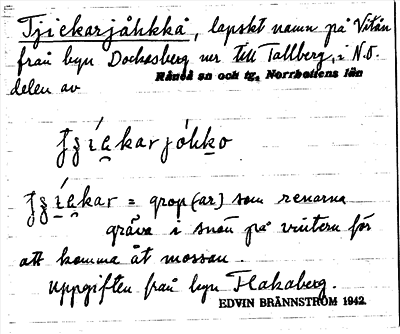 Tjiekarjåhkkå, lapskt namn på Vitån
från byn Dockasberg ner till Tallberg, i N.O.
delen av Råneå sn och tg, Norrbottens län
karjóhko
kar = grop(ar) som renarna
gräva i snön på vintern för
att komma åt mossan.
Uppgiften från byn Flakaberg.
EDVIN BRÄNNSTRÖM 1942.